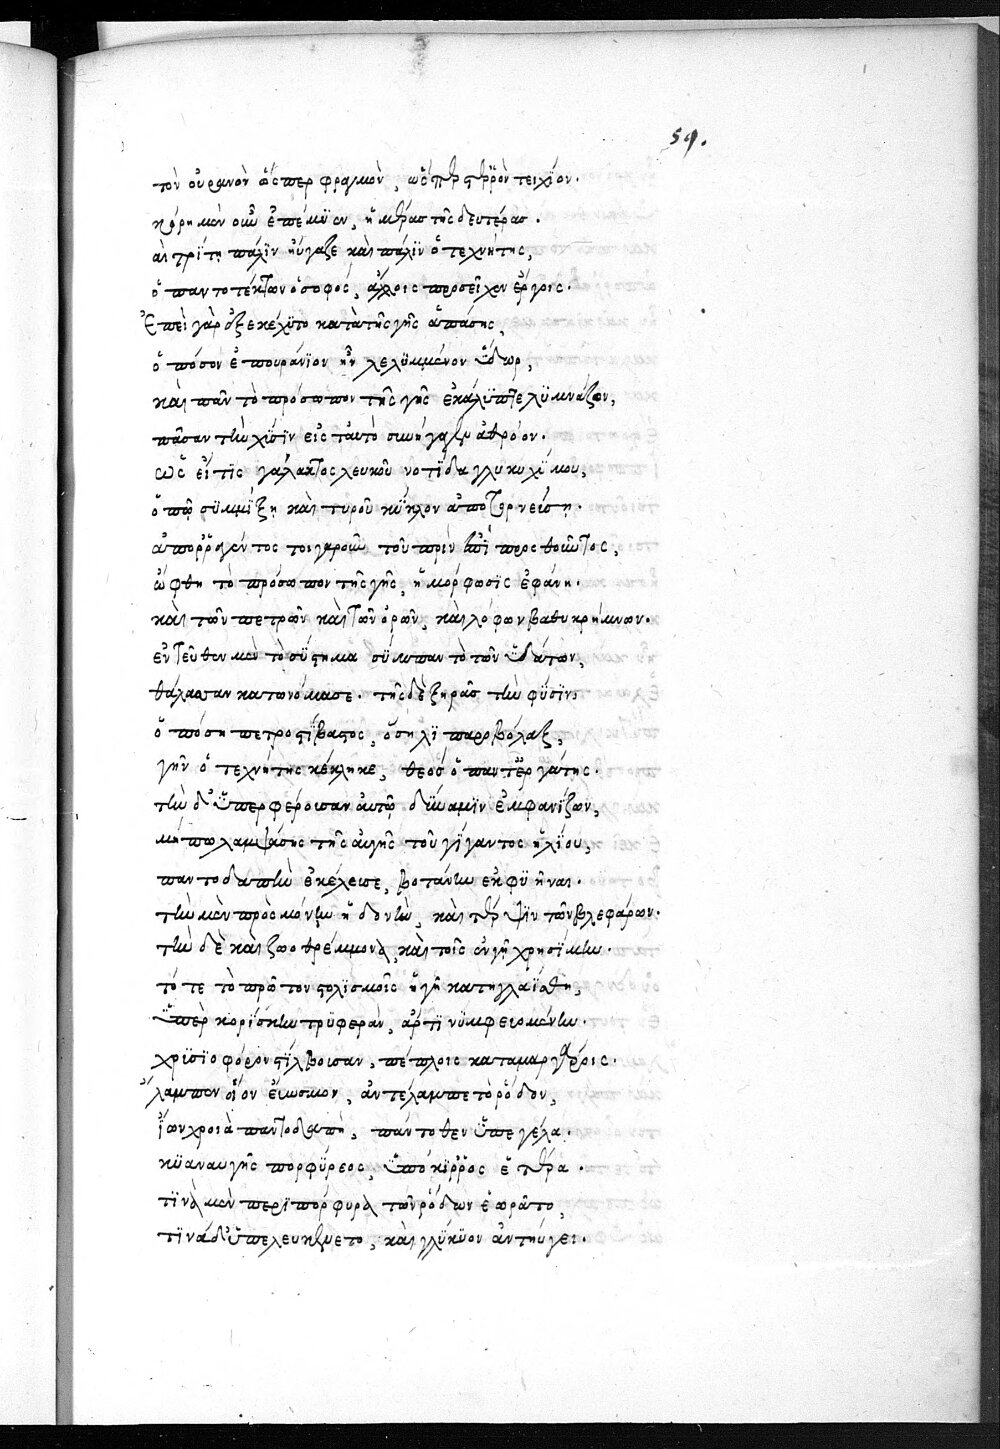 59.
τὸν οὐρανὸν ὥσπερ φραγμὸν, ὥσπερ στερρὸν τειχίον.
κόρη μὲν οὖν ἐπέμϋεν, ἡμέρας τῆς δευτέρας.
τρίτη πάλϊν ηὔγαζε καὶ πάλϊν ὁ τεχνήτης,
ὁ παντοτέκτων ὁ σοφός, ἄλλοις προσεῖχεν ἔργοις.
Ἐπεὶ γὰρ ἐξεκέχϋτο κατὰ τῆς γῆς ἁπάσης,
ὁπόσον ἐπουράνϊον ἦν λελϋμμένον ὕδωρ,
καὶ πᾶν τὸ πρόσωπον τῆς γῆς ἐκάλϋπτε λϋμνάζον,
πᾶσαν τὴν χύσϊν εἰς ταὐτὸ συνήγαγεν ἀθρόον.
ὡς εἴ τϊς γάλακτος λευκοῦ νοτΐδα γλυκυχΰμου,
ὀπῷ σϋμμΐξῃ καὶ τυροῦ κΰκλον ἀποτορνεύσῃ.
ἀπορῥαγέντος τοιγαροῦν τοῦ πρὶν ἐπιπροσθοῦντος,
ὤφθη τὸ πρόσωπον τῆς γῆς, ἡ μόρφωσϊς ἐφάνη.
καὶ τῶν πετρῶν καὶ τῶν ὀρῶν, καὶ λόφων βαθυκρήμνων.
ἐντεῦθεν μὲν τὸ σΰστημα σΰμπαν τὸ τῶν ὑδάτων,
θάλασσαν κατωνόμασε. τῆς δὲ ξηρᾶς τὴν φΰσϊν,
ὁπόση πετροστΐβαστος, ὅση λϊπαρόβόλαξ,
γῆν ὁ τεχνήτης κέκληκε, θεὸς ὁ παντεργάτης.
τὴν δ᾽ ὑπερφέρουσαν αὐτοῦ δΰναμϊν ἐμφανΐζων,
μήπω λαμψάσης τῆς αὐγῆς τοῦ γΐγαντος ἡλΐου,
παντοδαπὴν ἐκέλευσε, βοτάνην ἐκφϋῆναι.
τὴν μὲν πρὸς μόνην ἡδονὴν, καὶ τέρψϊν τῶν βλεφάρων.
τὴν δὲ καὶ ζωοθρέμμονα, καὶ τοῖς ἐν γῇ χρησΐμην.
τότε τὸ πρῶτον στολϊσμοῖς ἡ γῆ κατηγλαΐσθη,
ὑπὲρ κορΐσκην τρϋφερὰν, ἄρτϊ νϋμφευομένην.
χρϋσϊοφόρον στΐλβουσαν, πέπλοις καταμαργάροις.
ἔλαμπεν οἷον εὔοσμον, ἀντέλαμπε τὸ ῥόδον,
ἴων χροιὰ παντοδαπὴ, πάντοθεν ὑπεγέλα.
κϋαναυγὴς πορφΰρεος, ὑπόκϊῤῥος ἑτέρα.
τϊνὰ μὲν περϊπόρφυρα τῶν ῥόδων ἑωρᾶτο,
τϊνὰ δ᾽ ὑπελευκαίνετο, καὶ γλΰκϋον ἀντηύγει.